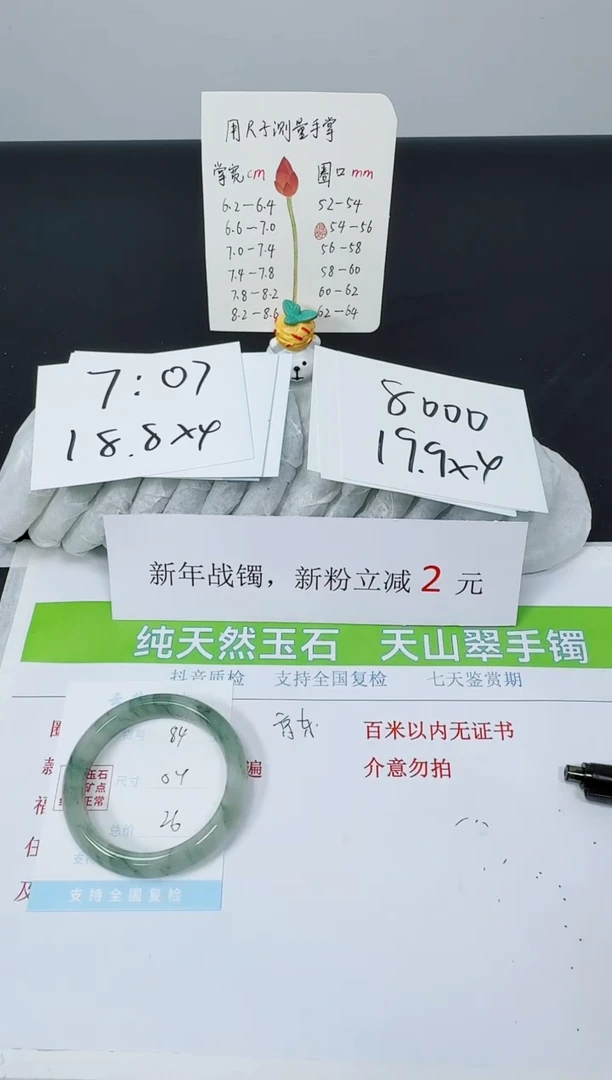 用尺子测量手掌
掌宽cm 圈口mm
6.2-6.4 52-54
6.6-7.0 54-56
7.0-7.4 56-58
7.4-7.8 58-60
7.8-8.2 60-62
8.2-8.6 62-64
7:07
18.8×4
8000
19.9×4
新年战镯，新粉立减2元
纯天然玉石 天山翠手镯
抖音质检 支持全国复检 七天鉴赏期
号 84
百米以内无证书
尺寸 04
遍
介意勿拍
玉石
矿点
正常
福
总价 26
支
及
支持全国复检